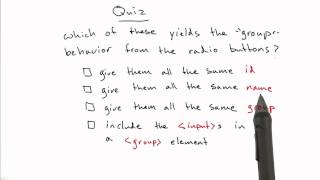 Quiz
which of these yields the "group-
behavior from the radio buttons?
☐ give them all the same id
☐ give them all the same name
☐ give them all the same group
☐ include the <input>s in
a <group> element